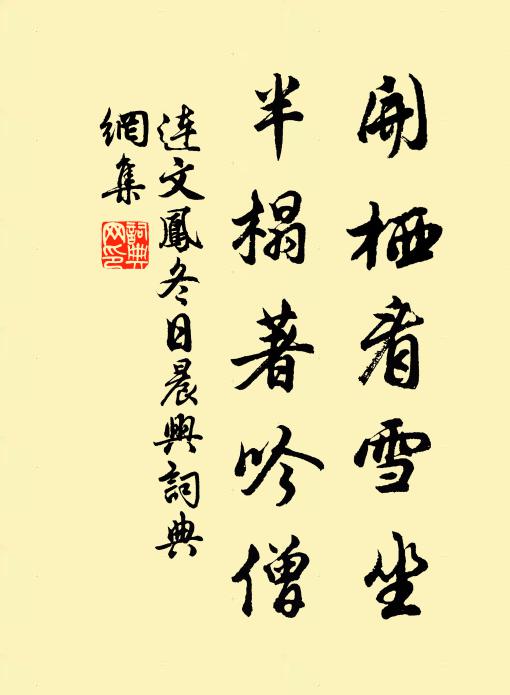 開栖看雪坐
半榻著吟僧
連文鳳冬日晨興詞典
網集
詞典網印